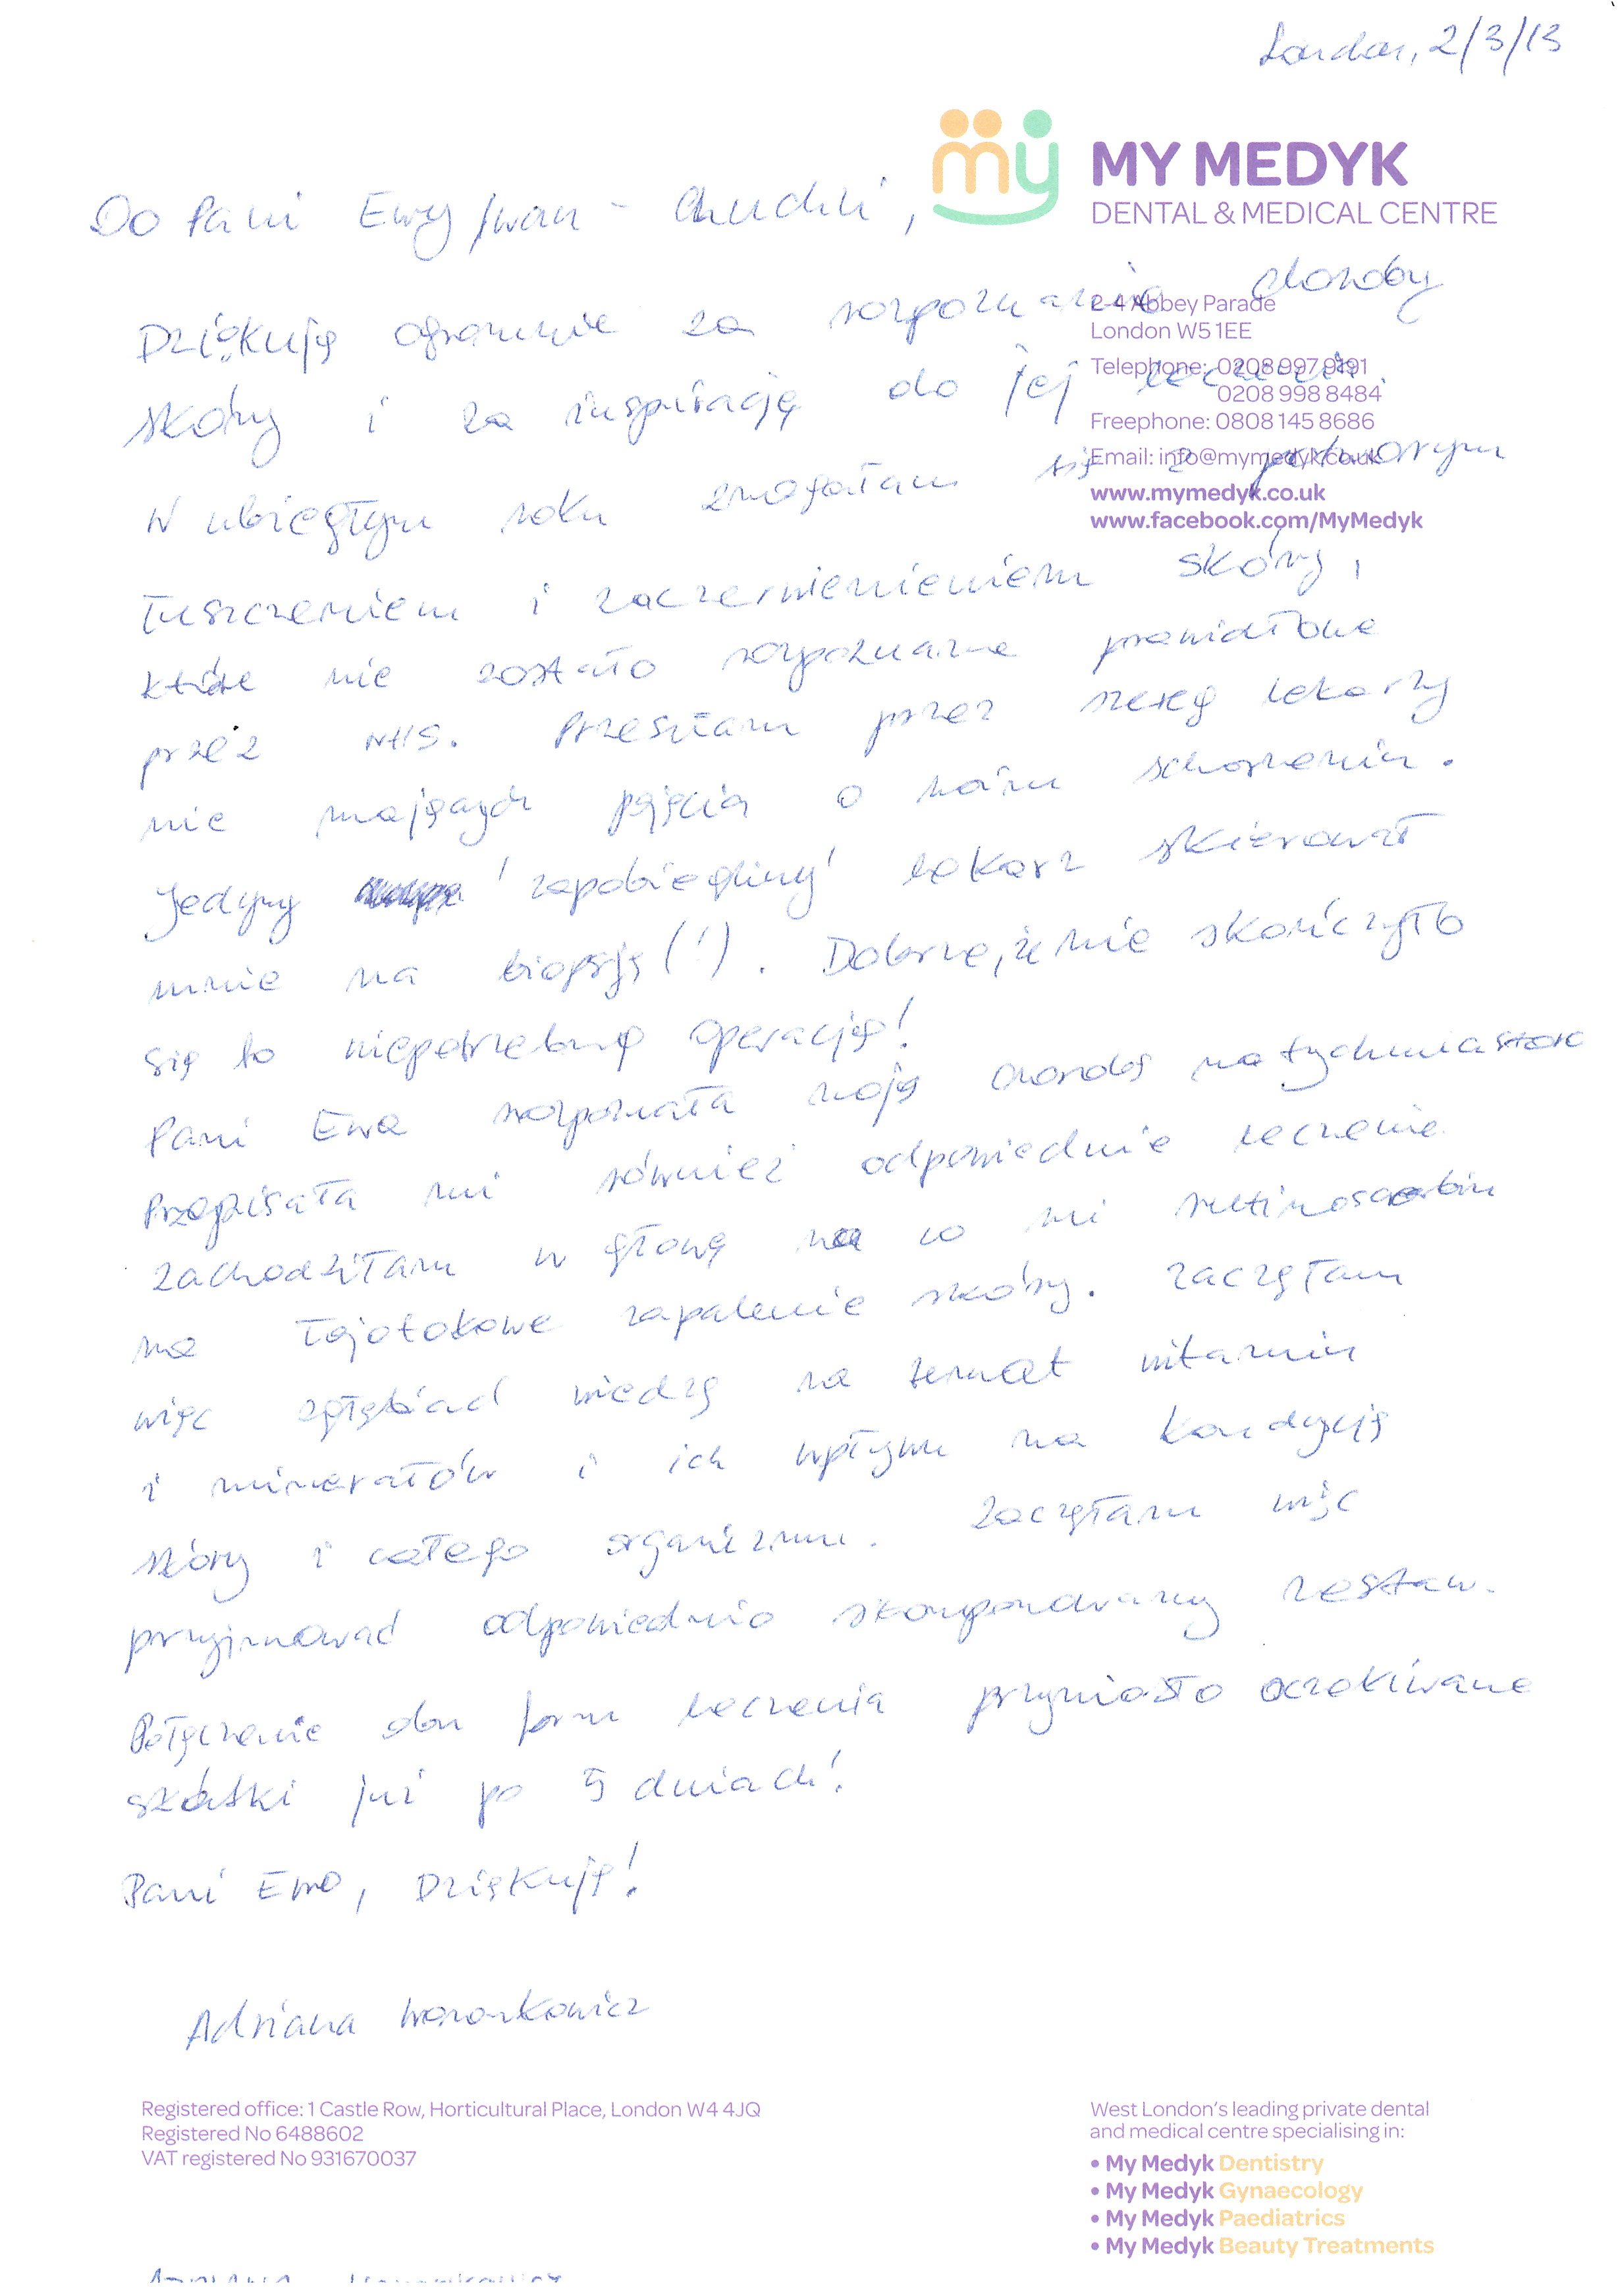 London, 2/3/13
my
MY MEDYK
DENTAL & MEDICAL CENTRE
2-4 Abbey Parade
London W5 1EE
Telephone: 0208 997 9191
0208 998 8484
Freephone: 0808 145 8686
Email: info@mymedyk.co.uk
www.mymedyk.co.uk
www.facebook.com/MyMedyk
Do Pani Ewy Iwan - Chuchli,
Dziękuję ogromnie za rozpoznanie choroby
skóry i za inspirację do jej leczenia.
W ubiegłym roku zmagałam się z potwornym
łuszczeniem i zaczerwienieniem skóry,
które nie zostało rozpoznane prawidłowo
przez NHS. Przeszłam przez szereg lekarzy
nie mających pojęcia o moim schorzeniu.
Jedyny 'zapobiegliwy' lekarz skierował
mnie na biopsję (!). Dobrze, że nie skończyło
się to niepotrzebną operacją!
Pani Ewa rozpoznała moją chorobę natychmiastowo
Przepisała mi również odpowiednie leczenie.
Zachodziłam w głowę na co mi
na łojotokowe zapalenie skóry. Zaczęłam
więc zgłębiać wiedzę na temat witamin
i minerałów i ich wpływu na kondycję
skóry i całego organizmu. Zaczęłam więc
przyjmować odpowiednio skomponowany zestaw.
Połączenie obu form leczenia przyniosło oczekiwane
skutki już po 5 dniach!
Pani Ewo, Dziękuję!
Adriana Woronkowicz
Registered office: 1 Castle Row, Horticultural Place, London W4 4JQ
Registered No 6488602
VAT registered No 931670037
West London's leading private dental
and medical centre specialising in:
• My Medyk Dentistry
• My Medyk Gynaecology
• My Medyk Paediatrics
• My Medyk Beauty Treatments